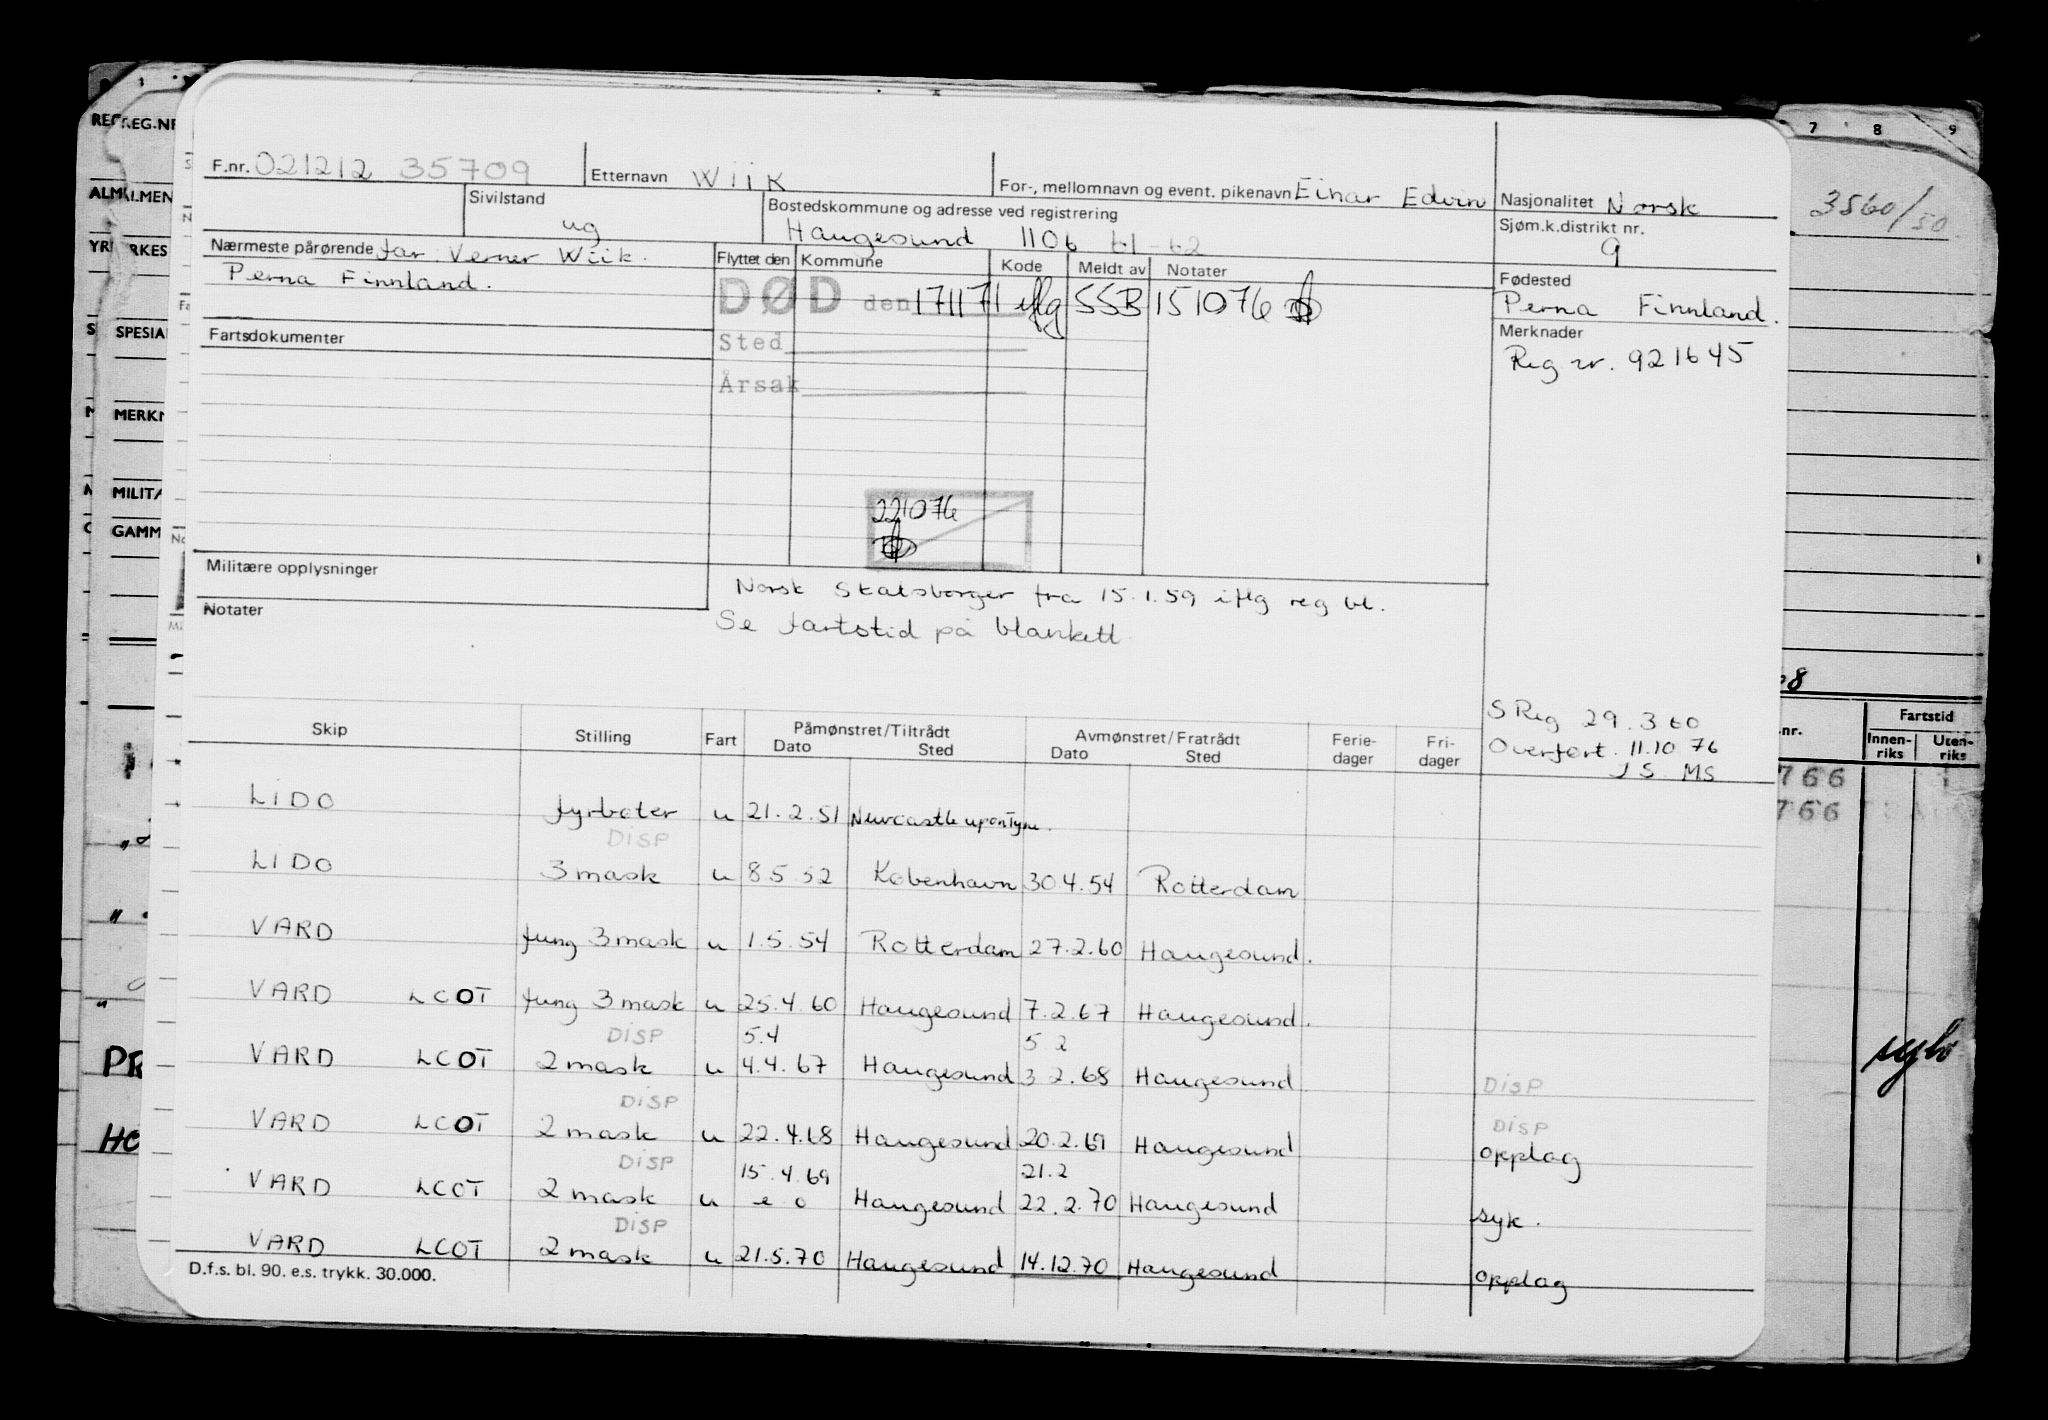 REG.NR
ALMEN
YRKES
SPESIAL
MERKN
MILITÆ
GAMM
7 8 9
3560/50
F.nr. 021212 35709 Etternavn Wiik For-, mellomnavn og event. pikenavn Einar Edvin Nasjonalitet Norsk
Sivilstand ug Bostedskommune og adresse ved registrering Haugesund 1106 61-62 Sjøm.k.distrikt nr. 9
Nærmeste pårørende far: Verner Wiik. Flyttet den Kommune Kode Meldt av Notater Fødested
Perna Finnland. DØD den 171171 iflg SSB 151076 Perna Finnland.
Fartsdokumenter Sted Merknader
Årsak Reg nr. 921645
221076
Militære opplysninger
Norsk Statsborger fra 15.1.59 iflg reg bl.
Notater Se fartstid på blankett
S Reg 29.3 60
Overført. 11.10 76
J S. MS
Skip Stilling Fart Påmønstret/Tiltrådt Dato Sted Avmønstret/Fratrådt Dato Sted Ferie-dager Fri-dager
LIDO fyrbøter u 21.2.51 Newcastle upon Tyne.
DISP
LIDO 3 mask u 8.5 52 København 30.4.54 Rotterdam
VARD fung 3 mask u 1.5.54 Rotterdam 27.2.60 Haugesund.
VARD LCOT fung 3 mask u 25.4.60 Haugesund 7.2.67 Haugesund.
DISP 5.4 5 2
VARD LCOT 2 mask u 4.4.67 Haugesund 3 2.68 Haugesund DISP
DISP
VARD LCOT 2 mask u 22.4.68 Haugesund 20.2.69 Haugesund DISP opplag
DISP 15.4.69 21.2
VARD LCOT 2 mask u Haugesund 22.2.70 Haugesund syk.
DISP
VARD LCOT 2 mask u 21.5.70 Haugesund 14.12.70 Haugesund opplag
D.f.s. bl. 90. e.s. trykk. 30.000.
Fartstid
.nr. Innen-riks Uten-riks
766
766